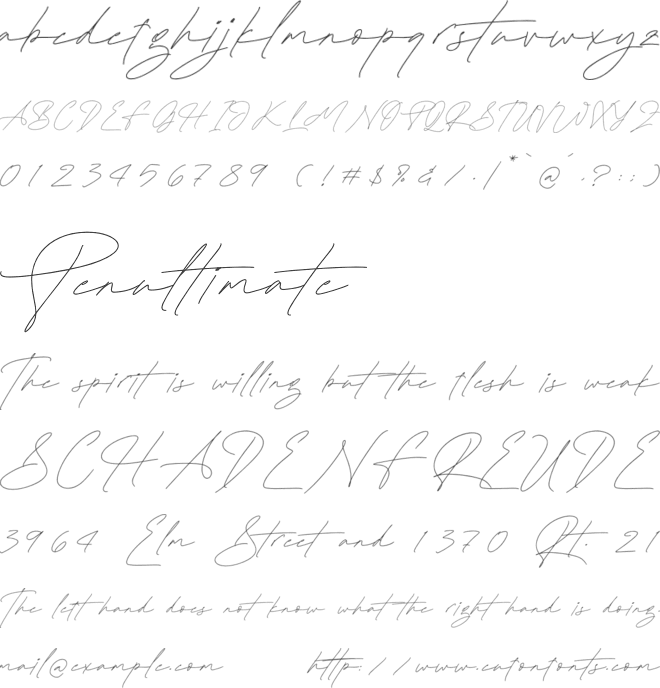 abcdefghijklmnopqrstuvwxyz
ABCDEFGHIJKLMNOPQRSTUVWXYZ
0123456789 (!#$%&/.|*`@´.?:;)
Penultimate
The spirit is willing but the flesh is weak
SCHADENFREUDE
3964 Elm Street and 1370 Rt. 21
The left hand does not know what the right hand is doing.
mail@example.com http://www.eatonfonts.com